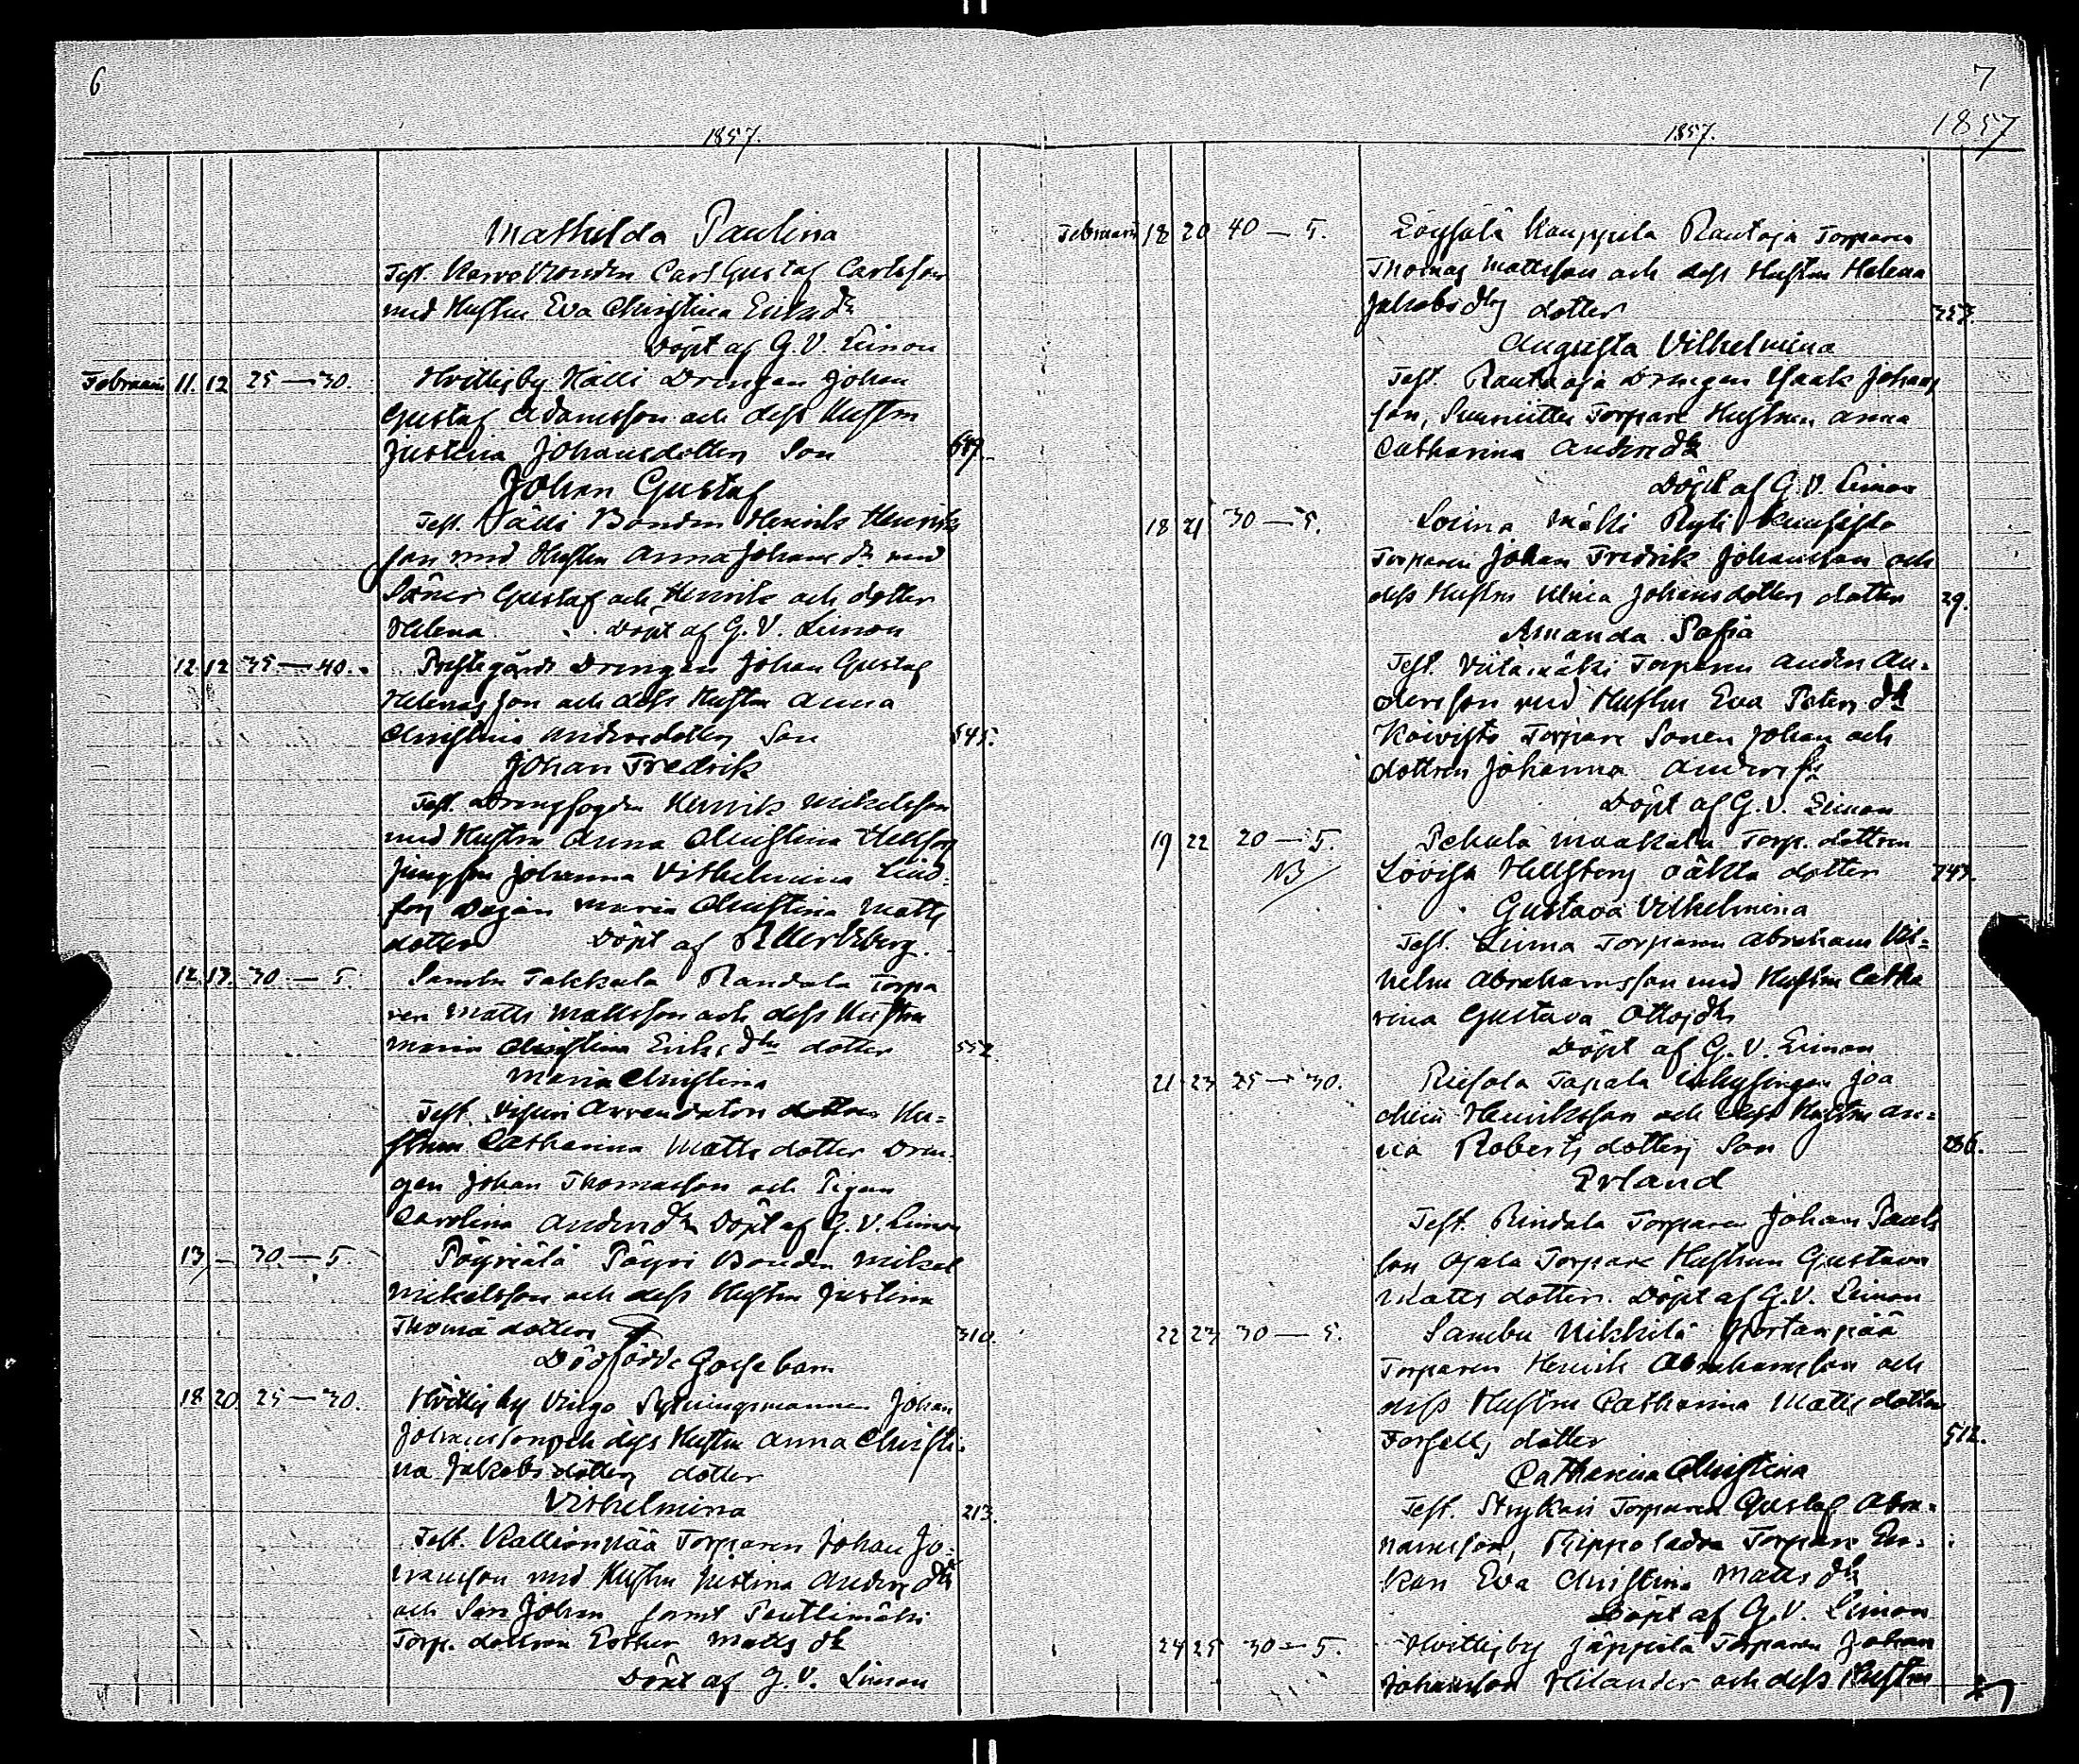 6
1857.
Mathilda Paulina
Test. Karvo Bonden Carl Gustaf Carlsson
med Hustru Eva Christina Eriksdr
Döpt af G. V. Limon
Februari 11. 12 25—30. Hvittisby Källi Drengen Johan
Gustaf Adamsson och dess Hustru
Justina Johansdotters Son
Johan Gustaf
Test. Källi Bonden Henrik Henrik
son med Hustru Anna Johansdr med
Söner Gustaf och Henrik och dotter
Helena Döpt af G. V. Limon
12 12 35—40. Prestegårds Drengen Johan Gustaf
Helenasson och dess Hustru Anna
Christina Andersdotters Son 545.
Johan Fredrik
Test. Drengfogden Henrik Mikelsson
med Hustru Anna Christina
Jungfru Johanna Vilhelmina Lind
Maria Christina Matts
dotter Döpt af
12. 13. 30.—5. Sambu Takkula Torpa
ren Matts Mattsson och dess Hustru
Maria Christina Eriksdrs dotter 552.
Maria Christina
Test. Arrendatorn Hu=
strun Catharina Matts dotter Dren
gen Johan Thomasson och Pigan
Carolina Andersdr Döpt af G. V. Limon
13 — 30.—5. Pöyriälä Pöyri Bonden Mikel
Mikelsson och dess Hustru Justina
Thomædotters 310.
Dödfödde Gossebarn
18 20 25—30. Hvittisby Johan
Johansson och dess Hustru Anna Christi
na Jakobsdotters dotter
Vilhelmina 213.
Test. Kallionpää Torparen Johan Jo=
hansson med Hustru Justina Andersdr
och Son Johan samt
Torp. dottren Esther Mattsdr
Döpt af G. V. Limon
7
1857
1857.
Februari 18 20 40—5. Löysälä Kauppila Rautoja Torparen
Thomas Mattsson och dess Hustru Helena
Jakobsdrs dotter
Augusta Vilhelmina
Test. Rautaoja Drengen Isaak Johans
son, Torpare Hustrun Anna
Catharina Andersdr
Döpt af G. V. Limon
18 21 30—5. Loima Mälli Kuusisto
Torparen Johan Fredrik Johansson och
dess Hustru Ulrica Johansdotters dotter 29.
Amanda Sofia
Test. Viitamäki Torparen Anders An=
dersson med Hustru Eva Petersdr
Koivisto Torpare Sonen Johan och
dottren Johanna
Döpt af G. V. Limon
19 22 20—5. Torp. dottren
NB Lovisa Hellstens oäkta dotter 743.
Gustava Vilhelmina
Test. Torparen Abraham Vil=
helm Abrahamsson med Hustru Catha
rina Gustava Ottosdr
Döpt af G. V. Limon
21 23 25—30. Riesola Tapala Inhysingen Joa
chim Henriksson och dess Hustru An=
na Roberts dotters Son 236.
Erland
Test. Rindala Torparen Johan Pauls
son Ojala Torpare Hustrun Gustava
Matts dotter. Döpt af G. V. Limon
22 23 30—5. Sambu Nikkilä
Torparen Henrik Abrahamsson och
dess Hustru Catharina Matts dotter
Forsells dotter 512.
Catharina Christina
Test. Torparen Gustaf Abra=
hamsson, Torpare En=
kan Eva Christina Mattsdr
Döpt af G. V. Limon
24 25 30—5. Hvittisby Jäppilä Torparen Johan
Johansson Hilander och dess Hustru